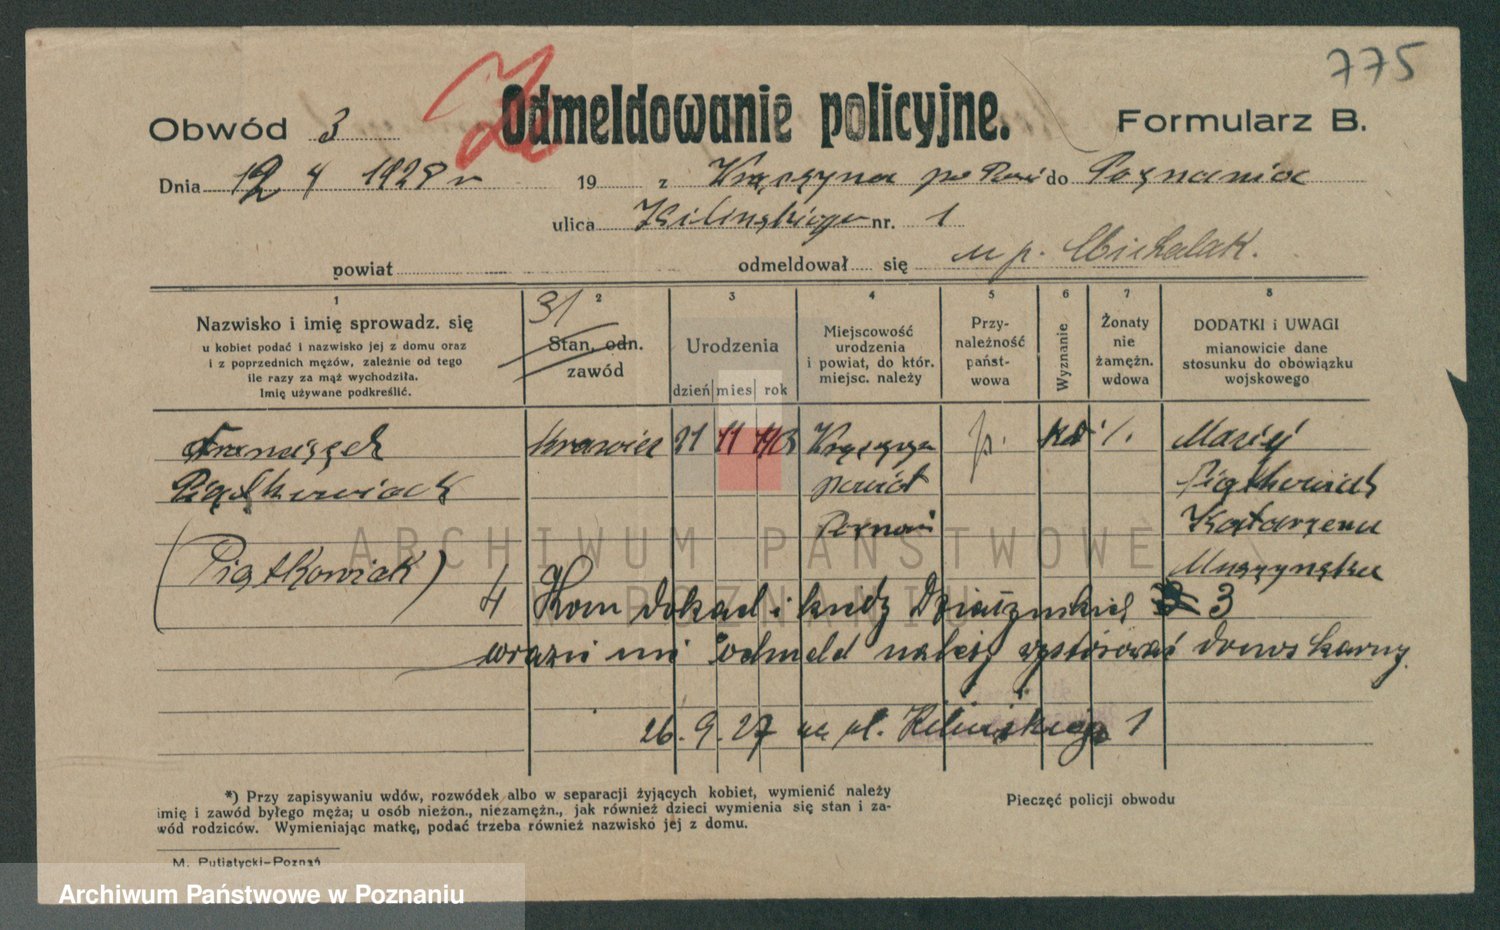 775
Odmeldowanie policyjne.
Obwód 3
Formularz B.
Dnia 12 4 1928 r 19 z do Poznania
ulica Kilińskiego nr. 1
powiat odmeldował się u p. Michalak.
1
Nazwisko i imię sprowadz. się
u kobiet podać i nazwisko jej z domu oraz
i z poprzednich mężów, zależnie od tego
ile razy za mąż wychodziła.
Imię używane podkreślić.
31
2
Stan, odn.
zawód
3
Urodzenia
dzień mies rok
4
Miejscowość
urodzenia
i powiat, do któr.
miejsc. należy
5
Przy-
należność
państ-
wowa
6
Wyznanie
7
Żonaty
nie
żamężn.
wdowa
8
DODATKI i UWAGI
mianowicie dane
stosunku do obowiązku
wojskowego
Franciszek krawiec 21 11 p. Maciej
Piątkowiak powiat Piątkowiak
Poznań Katarzyna
(Piątkowiak) Muszyńska
4 Kom dokąd i kiedy 3
wrazie nie odmeld należy donos karny.
26. 9. 27 na ul. Kilińskiego 1
*) Przy zapisywaniu wdów, rozwódek albo w separacji żyjących kobiet, wymienić należy
imię i zawód byłego męża; u osób nieżon., niezamężn., jak również dzieci wymienia się stan i za-
wód rodziców. Wymieniając matkę, podać trzeba również nazwisko jej z domu.
Pieczęć policji obwodu
M. Putiatycki-Poznań
ARCHIWUM PAŃSTWOWE
W POZNANIU
Archiwum Państwowe w Poznaniu